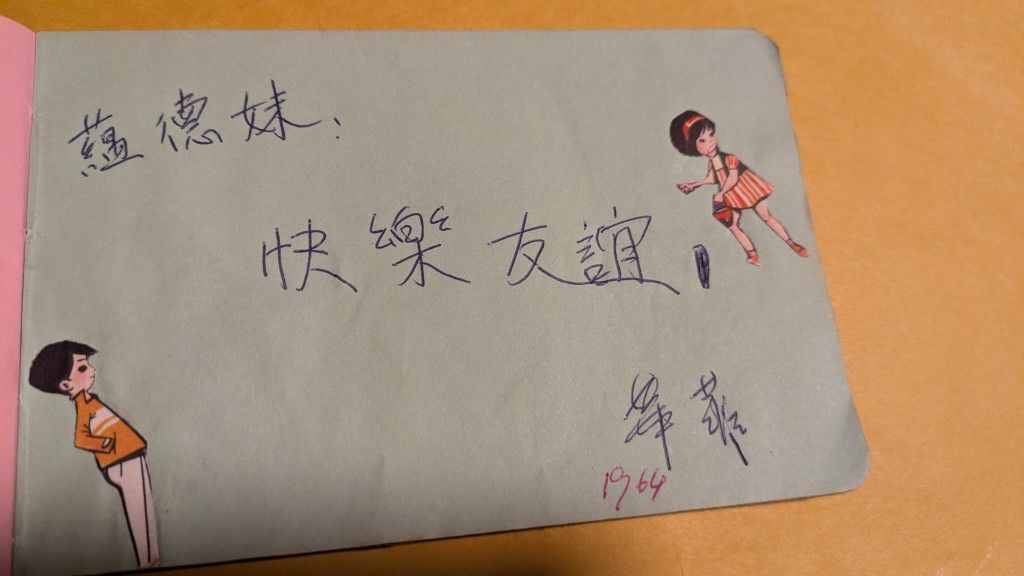 蘊德妹：
快樂友誼！
華菲
1964